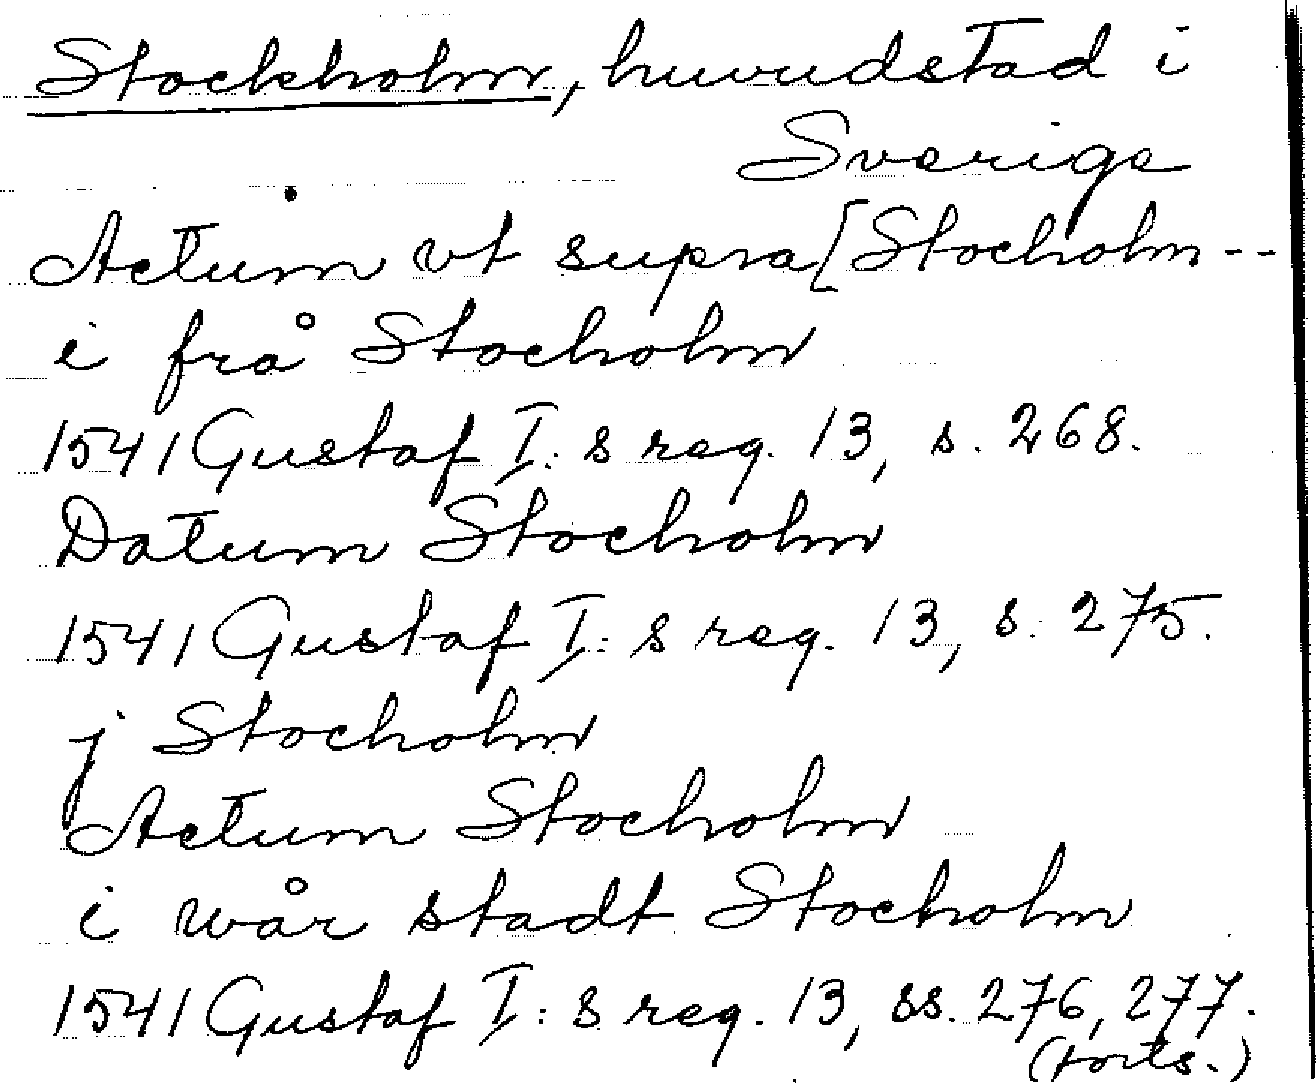 Stockholm, huvudstad i
Sverige
Actum vt supra [Stocholm --
i frå Stocholm
1541 Gustaf I:s reg. 13, s. 268.
Datum Stocholm
1541 Gustaf I:s reg. 13, s. 275.
j Stocholm
Actum Stocholm
i wår stadt Stocholm
1541 Gustaf I:s reg. 13, ss. 276, 277.
(forts.)